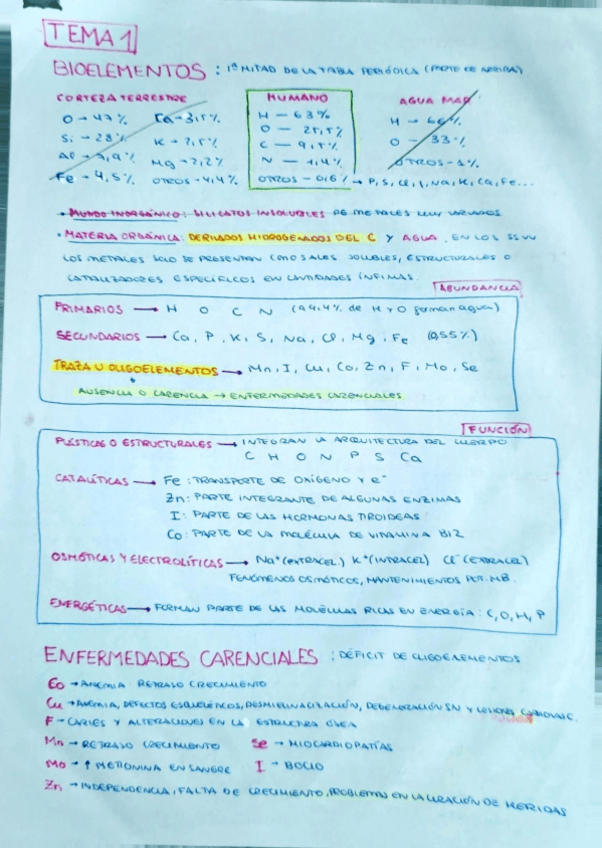 TEMA 1
BIOELEMENTOS : 1ª MITAD DE LA TABLA PERIÓDICA (PARTE DE ARRIBA)
CORTEZA TERRESTRE
O → 47% Ca → 3,5%
Si → 28% K → 2,5%
Al → 7,9% Mg → 2,2%
Fe → 4,5% OTROS → 4,4%
HUMANO
H — 63%
O — 25,5%
C — 9,5%
N — 1,4%
OTROS — 0,6% → P, S, Cl, I, Na, K, Ca, Fe...
AGUA MAR
H → 66%
O → 33%
OTROS → 1%
• MUNDO INORGÁNICO: SILICATOS INSOLUBLES DE METALES MUY VARIADOS
• MATERIA ORGÁNICA: DERIVADOS HIDROGENADOS DEL C Y AGUA. EN LOS SSVV
LOS METALES SOLO SE PRESENTAN COMO SALES SOLUBLES, ESTRUCTURALES O
CATALIZADORES ESPECÍFICOS EN CANTIDADES ÍNFIMAS.
ABUNDANCIA
PRIMARIOS → H O C N (99,4% de H y O forman agua)
SECUNDARIOS → Ca, P, K, S, Na, Cl, Mg, Fe (0,55%)
TRAZA U OLIGOELEMENTOS → Mn, I, Cu, Co, Zn, F, Mo, Se
AUSENCIA O CARENCIA → ENFERMEDADES CARENCIALES
FUNCIÓN
PLÁSTICAS O ESTRUCTURALES → INTEGRAN LA ARQUITECTURA DEL CUERPO
C H O N P S Ca
CATALÍTICAS → Fe: TRANSPORTE DE OXÍGENO Y e⁻
Zn: PARTE INTEGRANTE DE ALGUNAS ENZIMAS
I: PARTE DE LAS HORMONAS TIROIDEAS
Co: PARTE DE LA MOLÉCULA DE VITAMINA B12
OSMÓTICAS Y ELECTROLÍTICAS → Na⁺ (EXTRACEL) K⁺ (INTRACEL) Cl⁻ (EXTRACEL)
FENÓMENOS OSMÓTICOS, MANTENIMIENTOS POT. MB.
ENERGÉTICAS → FORMAN PARTE DE LAS MOLÉCULAS RICAS EN ENERGÍA: C, O, H, P
ENFERMEDADES CARENCIALES : DÉFICIT DE OLIGOELEMENTOS
Co → ANEMIA RETRASO CRECIMIENTO
Cu → ANEMIA, DEFECTOS ESQUELÉTICOS, DESMIELINACIZACIÓN, DEGENERACIÓN SN Y LESIONES CARDIOVASC.
F → CARIES Y ALTERACIONES EN LA ESTRUCTURA ÓSEA
Mn → RETRASO CRECIMIENTO Se → MIOCARDIOPATÍAS
Mo → ↑ METIONINA EN SANGRE I → BOCIO
Zn → INDEPENDENCIA, FALTA DE CRECIMIENTO, PROBLEMAS EN LA CURACIÓN DE HERIDAS